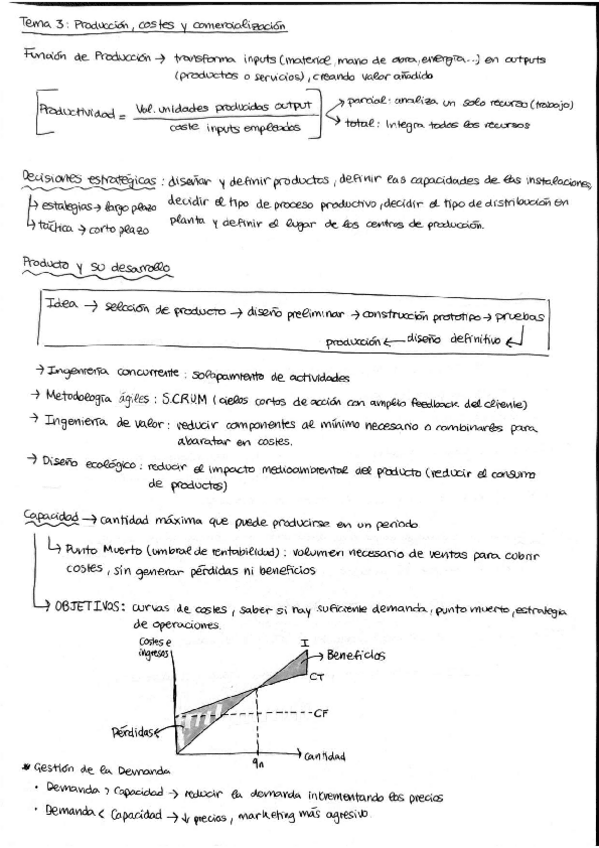 Tema 3: Producción, costes y comercialización
Función de Producción → transforma inputs (material, mano de obra, energía...) en outputs
(productos o servicios), creando valor añadido
Productividad = Vol. unidades producidas output / coste inputs empleados
→ parcial: analiza un solo recurso (trabajo)
→ total: Integra todos los recursos
Decisiones estratégicas: diseñar y definir productos, definir las capacidades de las instalaciones,
↳ estategias → largo plazo
decidir el tipo de proceso productivo, decidir el tipo de distribución en
↳ táctica → corto plazo
planta y definir el lugar de los centros de producción.
Producto y su desarrollo
Idea → selección de producto → diseño preliminar → construcción prototipo → pruebas
producción ← diseño definitivo ↵
→ Ingeniería concurrente: solapamiento de actividades
→ Metodología ágiles: SCRUM (ciclos cortos de acción con amplio feedback del cliente)
→ Ingeniería de valor: reducir componentes al mínimo necesario o combinarlos para
abaratar en costes.
→ Diseño ecológico: reducir el impacto medioambiental del producto (reducir el consumo
de productos)
Capacidad → cantidad máxima que puede producirse en un periodo
↳ Punto Muerto (umbral de rentabilidad): volumen necesario de ventas para cubrir
costes, sin generar pérdidas ni beneficios
↳ OBJETIVOS: curvas de costes, saber si hay suficiente demanda, punto muerto, estrategia
de operaciones.
Costes e
ingresos
I
→ Beneficios
CT
CF
Pérdidas
qn
Cantidad
* Gestión de la Demanda
· Demanda > Capacidad → reducir la demanda incrementando los precios
· Demanda < Capacidad → ↓ precios, marketing más agresivo.